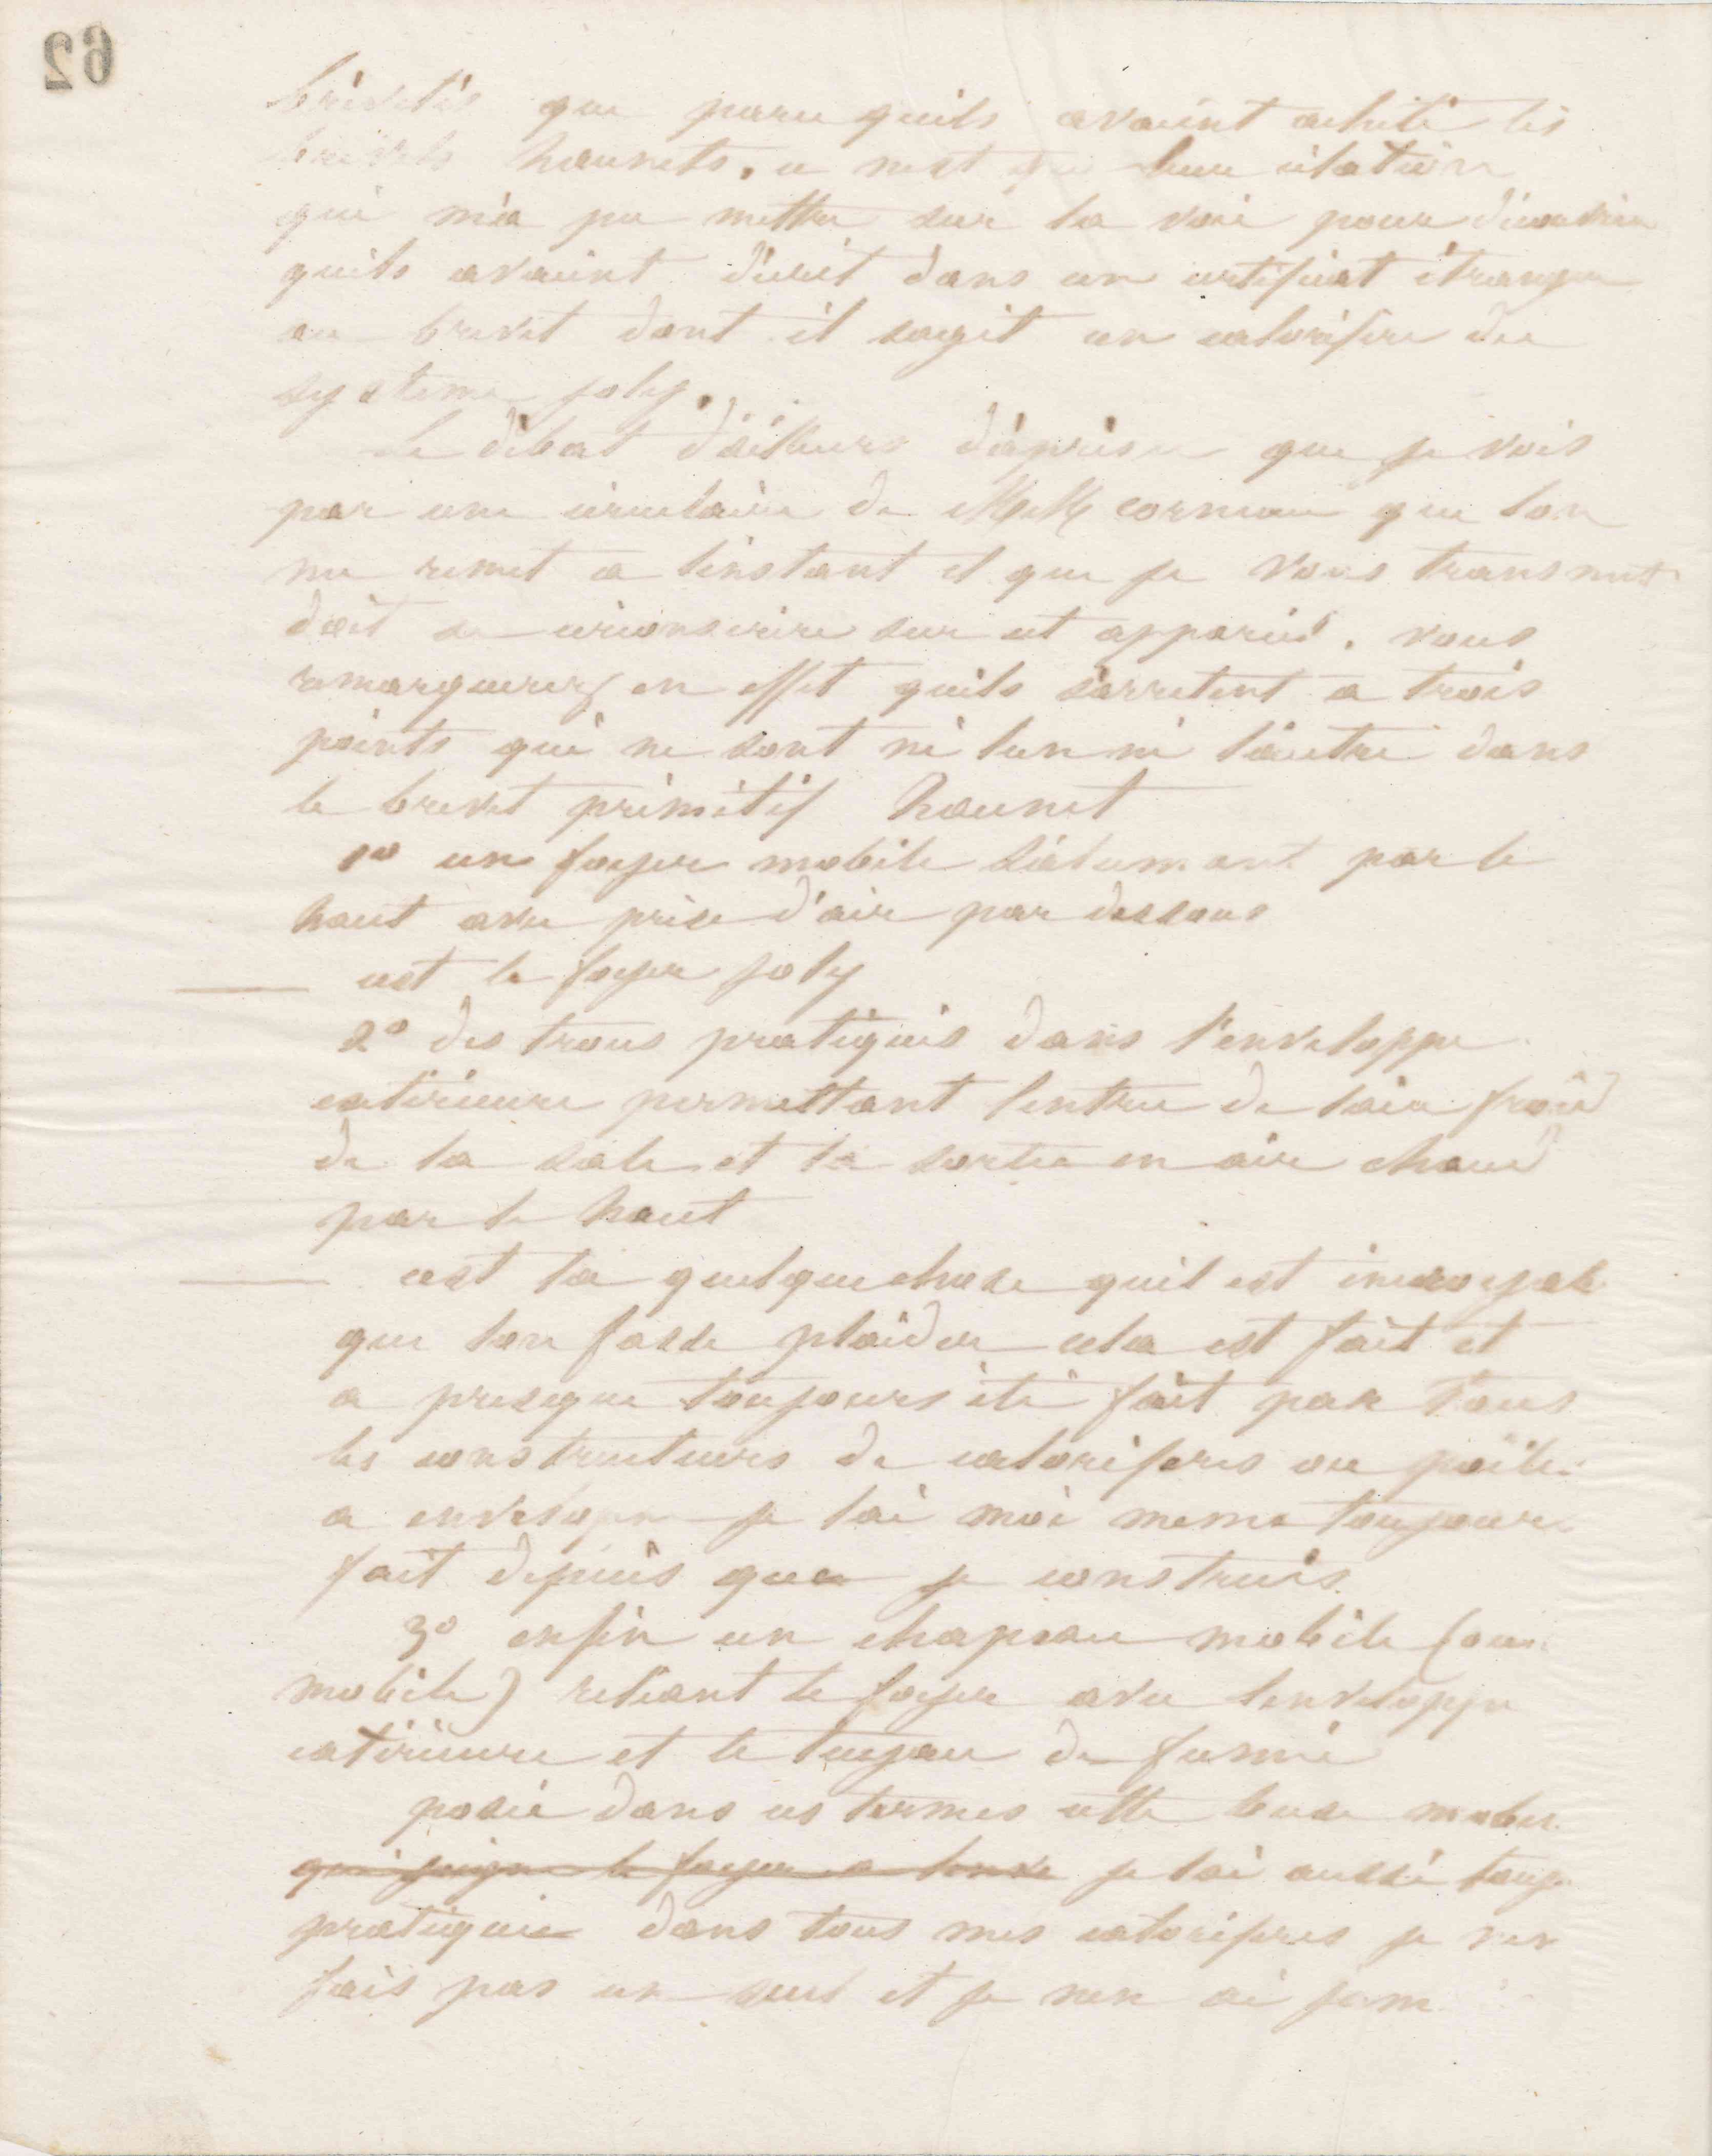 62
brevetés que parce quils avaient acheté les
brevets haunets. ce nest que leur citation
qui m'a pu mettre sur la voie pour découvrir
quils avaient décrit dans un certificat étranger
au brevet dont il sagit un calorifere du
systeme joly.
Le débat d'ailleurs d'après ce que je vois
par une circulaire de MM corneau que lon
me remet a l'instant et que je vous transmet
doit se circonscrire sur cet appareil. vous
remarquerez en effet quils s'arretent a trois
points qui ne sont ni lun ni l'autre dans
le brevet primitif haunet
1o un foyer mobile s'alumant par le
haut avec prise d'air par dessous
cest le foyer joly
2o des trous pratiqués dans l'enveloppe
extérieure permettant lentrée de lair froid
de la sale et la sortie en air chaud
par le haut
cest la quelque chose quil est incroyable
que lon fasse plaider cela est fait et
a presque toujours été fait par tous
les constructeurs de caloriferes ou poêles
a envelope je lai moi meme toujours
fait depuis que je construis
3o enfin un chapeau mobile (ou
mobile) reliant le foyer avec lenveloppe
extérieure et le tuyau de fumée
posée dans ces termes cette buse
qui joigne le foyer a je lai aussi touj
pratiquée dans tous mes caloriferes je nen
fais pas un seul et je nen ai jam